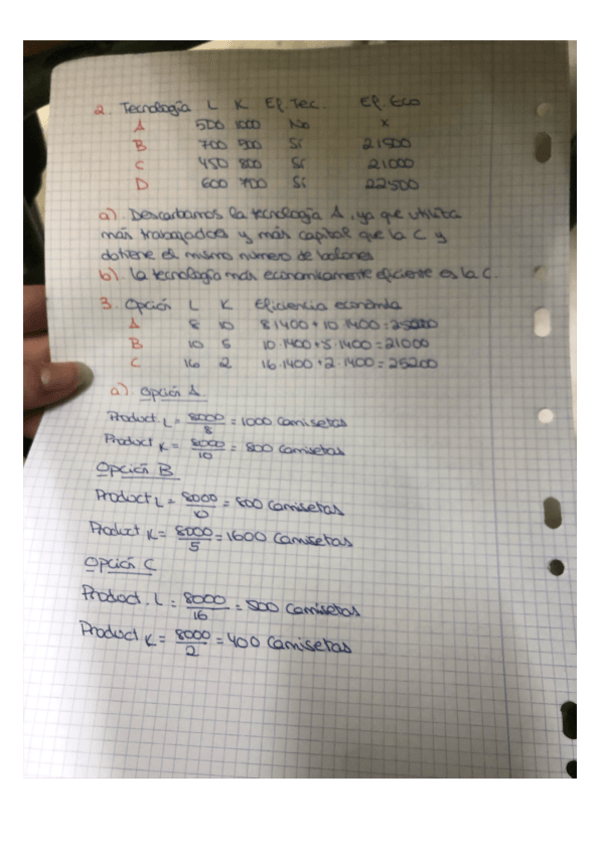 2. Tecnología L K Ef. Tec. Ef. Eco
A 500 1000 No x
B 700 500 Sí 21500
C 450 800 Sí 21000
D 600 700 Sí 22500
a). Descartamos la tecnología A, ya que utiliza
más trabajadores y más capital que la C y
obtiene el mismo número de balones
b). La tecnología más economicamente eficiente es la C.
3. Opción L K Eficiencia económia
A 8 10 8·1400+10·1400=
B 10 5 10·1400+5·1400=21000
C 16 2 16·1400+2·1400=25200
a). Opción A.
Product. L = 8000/8 = 1000 camisetas
Product K = 8000/10 = 800 camisetas
Opción B
Product L = 8000/10 = 800 camisetas
Product K = 8000/5 = 1600 camisetas
Opción C
Product. L = 8000/16 = 500 camisetas
Product K = 8000/2 = 400 camisetas